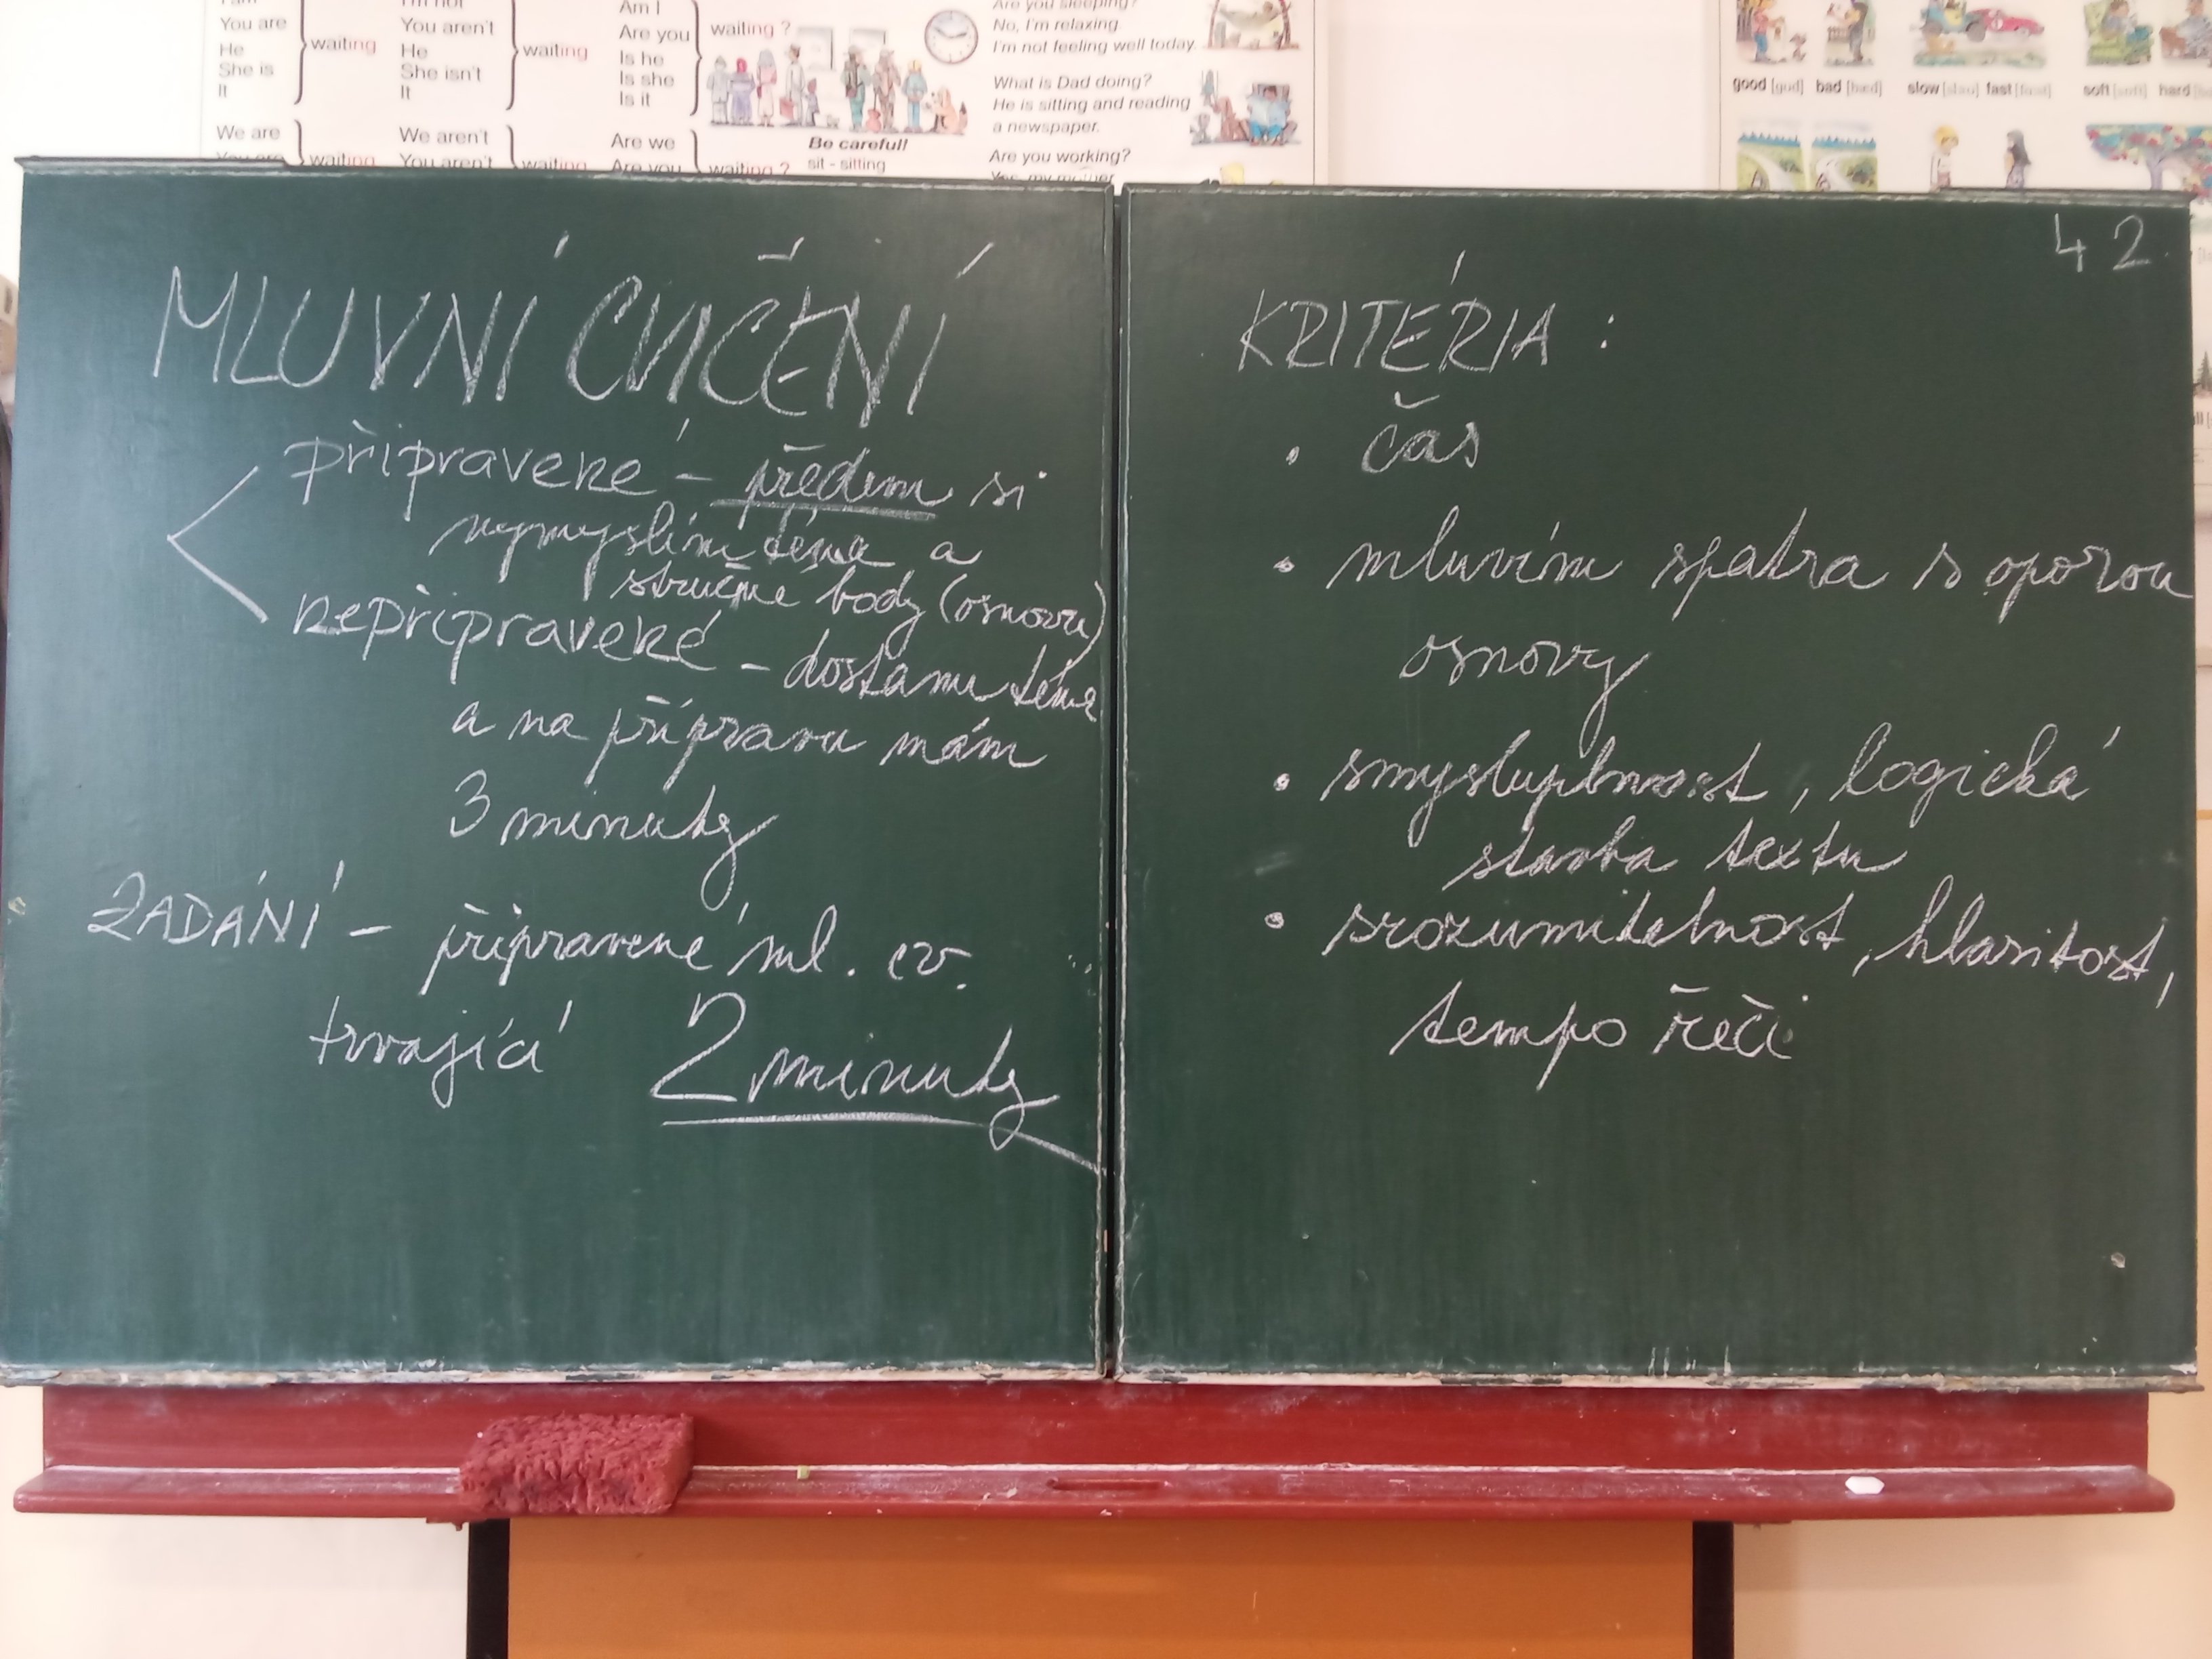 You are
He
She is
It
waiting
We are
waiting
You aren't
He
She isn't
It
waiting
We aren't
You aren't
waiting
Am I
Are you
Is he
Is she
Is it
waiting ?
Are we
Are you
waiting ?
Be careful!
sit - sitting
Are you sleeping?
No, I'm relaxing.
I'm not feeling well today.
What is Dad doing?
He is sitting and reading
a newspaper.
Are you working?
good [gud] bad [bæd] slow fast soft hard
MLUVNÍ CVIČENÍ
připravené – předem si
vymyslím téma a
stručné body (osnovu)
nepřipravené – dostanu téma
a na přípravu mám
3 minuty
ZADÁNÍ – připravené ml. cv.
trvající 2 minuty
4 2.
KRITÉRIA :
• čas
• mluvím spatra s oporou
osnovy
• smysluplnost, logická
stavba textu
• srozumitelnost, hlasitost,
tempo řeči